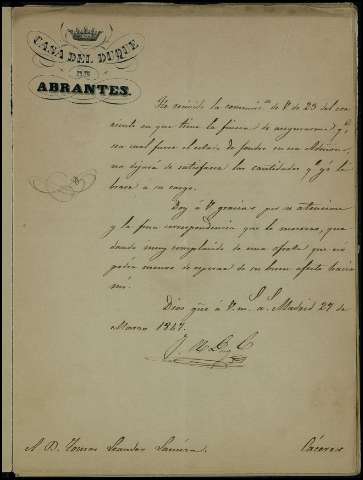 CASA DEL DUQUE
DE
ABRANTES.
He recivido la comunic.ⁿ de V. de 23 del cor
riente en que tiene la fineza de asegurarme q.ᵉ
sea cual fuere el estado de fondos en esa Admon,
no dejará de satisfacer las cantidades q.ᵉ yo le
a su cargo.
Doy á V. gracias por su atencion
y la fina correspondencia que le merezco, que
dando muy complacido de una oferta que no
podia menos de esperar de su buen afecto hacia
mi.
Dios güe á V. m. a. Madrid 27 de
Marzo 1847.
A D. Tomas Leandro
Cáceres